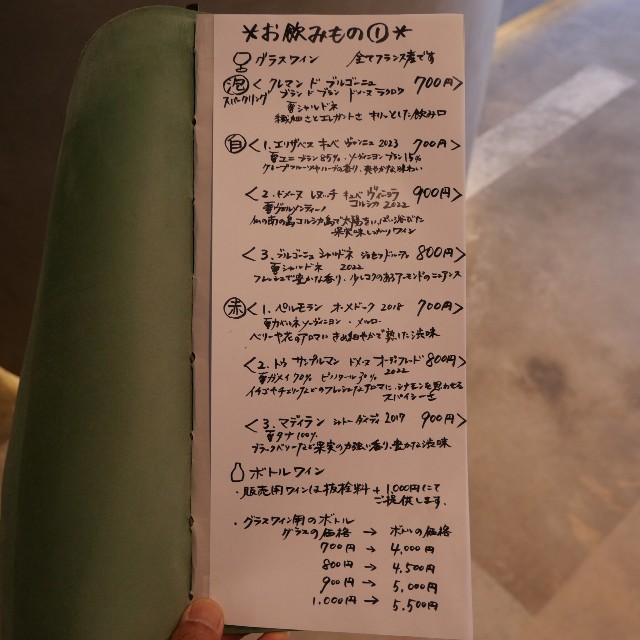 *お飲みもの①*
グラスワイン 全てフランス産です
泡 <クレマン ド ブルゴーニュ 700円>
スパークリング ブラン ド ブラン ドメーヌ
シャルドネ
繊細さとエレガントさ キリッとした飲み口
白 <1. エリザベス キュベ 2023 700円>
ユニ ブラン 85%、ソーヴィニヨン ブラン 15%
グレープフルーツやハーブの香り、爽やかな味わい
<2. ドメーヌ キュベ 900円>
コルシカ 2022
ヴェルメンティーノ
仏の南の島コルシカ島で太陽をいっぱい浴びた
果実味しっかりワイン
<3. ブルゴーニュ シャルドネ 800円>
シャルドネ 2022
フレッシュで豊かな香り、少しコクのあるアーモンドのニュアンス
赤 <1. ベルモラン オーメドック 2018 700円>
カベルネソーヴィニヨン・メルロー
ベリーや花のアロマに きめ細やかで熟した渋味
<2. トゥ サンプルマン ドメーヌ 800円>
2022
ガメイ 70% ピノノワール 30%
イチゴやチェリーなどのフレッシュなアロマに、シナモンを思わせる
スパイシーさ
<3. マディラン シャトー 2017 900円>
タナ 100%
ブラックベリーなど果実の力強い香り、豊かな渋味
ボトルワイン
・販売用ワインは抜栓料 + 1,000円にて
ご提供します。
・グラスワイン用のボトル
グラスの価格 → ボトルの価格
700円 → 4,000円
800円 → 4,500円
900円 → 5,000円
1,000円 → 5,500円